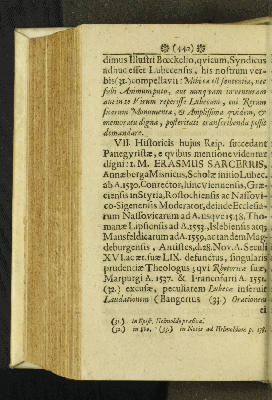 (442)
dimus Illustri Bœckelio, qvicum, Syndicus
adhuc esset Lubecensis, his nostrum ver-
bis (31.) compellavit: Mihi ea est sententia, nec
falli Animum puto, aut nunqvam inventuram
aut in te Virum reperisse Lubecam, qui Rerum
suarum Monumenta, & Amplissima qvidem, &
memoratu digna, posteritati transcribenda possit
demandare.
VII. Historicis hujus Reip. succedant
Panegyristæ, e qvibus mentione videntur
digni: 1. M. ERASMUS SARCERIUS,
Annæberga Misnicus, Scholæ initio Lubec.
ab A. 1530. Conrector, hinc Viennensis, Græ-
ciensis in Styria, Rostochiensis ac Nassovi-
co-Sigenensis Moderator, deinde Ecclesia-
rum Nassovicarum ad A. usqve 1548. Tho-
manæ Lipsiensis ad A. 1553., Islebiensis atqve
Mansfeldicarum ad A. 1559, ac tandem Mag-
deburgensis, Antistes, d. 28. Nov. A. Seculi
XVI. ac æt. suæ LIX. defunctus, singularis
prudentiæ Theologus; qvi Rhetoricæ suæ,
Marpurgi A. 1537. & Francofurti A. 1551.
(32.) excusæ, peculiarem Lubecæ inseruit
Laudationem (Bangertus (33.) Orationem
ei
(31.) in Epist. Helmoldo præfixa.
(32.) in 8vo. (33.) in Notis ad Helmoldum p. 138.